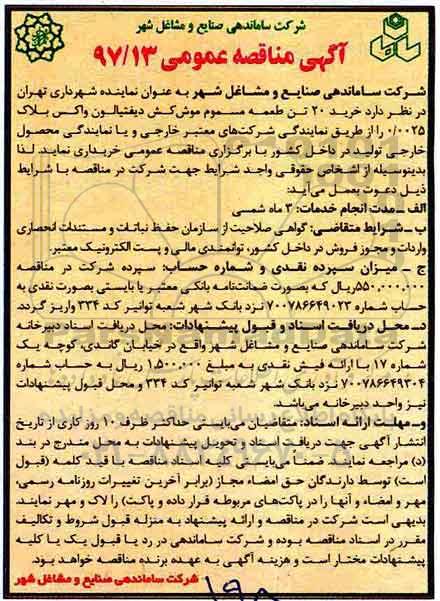 شرکت ساماندهی صنایع و مشاغل شهر
آگهی مناقصه عمومی ۹۷/۱۳
شرکت ساماندهی صنایع و مشاغل شهر به عنوان نماینده شهرداری تهران
در نظر دارد خرید ۲۰ تن طعمه مسموم موش‌کش دیفتیالون واکس بلاک
۰/۰۰۲۵ را از طریق نمایندگی شرکت‌های معتبر خارجی و یا نمایندگی محصول
خارجی تولید در داخل کشور با برگزاری مناقصه عمومی خریداری نماید. لذا
بدینوسیله از اشخاص حقوقی واجد شرایط جهت شرکت در مناقصه با شرایط
ذیل دعوت بعمل می‌آید:
الف ـ مدت انجام خدمات: ۳ ماه شمسی
ب ـ شـرایط متقاضی: گواهی صلاحیت از سازمان حفظ نباتات و مستندات انحصاری
واردات و مجوز فروش در داخل کشور، توانمندی مالی و پست الکترونیک معتبر
ج ـ میزان سپرده نقدی و شماره حساب: سپرده شرکت در مناقصه
۵۵۰٫۰۰۰٫۰۰۰ریال که بصورت ضمانت‌نامه بانکی معتبر یا بایستی بصورت نقدی به
حساب شماره ۷۰۰۷۸۶۶۴۹۰۲۳ نزد بانک شهر شعبه توانیر کد ۳۳۴ واریز گردد.
د ـ محل دریافت اسناد و قبول پیشنهادات: محل دریافت اسناد دبیرخانه
شرکت ساماندهی صنایع و مشاغل شهر واقع در خیابان گاندی، کوچه یک
شماره ۱۷ با ارائه فیش نقدی به مبلغ ۱٫۵۰۰٫۰۰۰ ریال به حساب شماره
۷۰۰۷۸۶۶۴۹۳۰۴ نزد بانک شهر شعبه توانیر کد ۳۳۴ و محل قبول پیشنهادات
نیز واحد دبیرخانه می‌باشد.
و ـ مهلت ارائه اسناد: متقاضیان می‌بایستی حداکثر ظرف ۱۰ روز کاری از تاریخ
انتشار آگهی جهت دریافت اسناد و تحویل پیشنهادات به محل مندرج در بند
(د) مراجعه نمایند. ضمناً می‌بایستی کلیه اسناد مناقصه با قید کلمه (قبول
است) توسط دارندگان حق امضاء مجاز (برابر آخرین تغییرات روزنامه رسمی،
مهر و امضاء و آنها را در پاکت‌های مربوطه قرار داده و پاکت) را لاک و مهر نمایند.
بدیهی است شرکت در مناقصه و ارائه پیشنهاد به منزله قبول شروط و تکالیف
مقرر در اسناد مناقصه بوده و شرکت ساماندهی در رد یا قبول یک یا کلیه
پیشنهادات مختار است و هزینه آگهی به عهده برنده مناقصه خواهد بود.
شرکت ساماندهی صنایع و مشاغل شهر